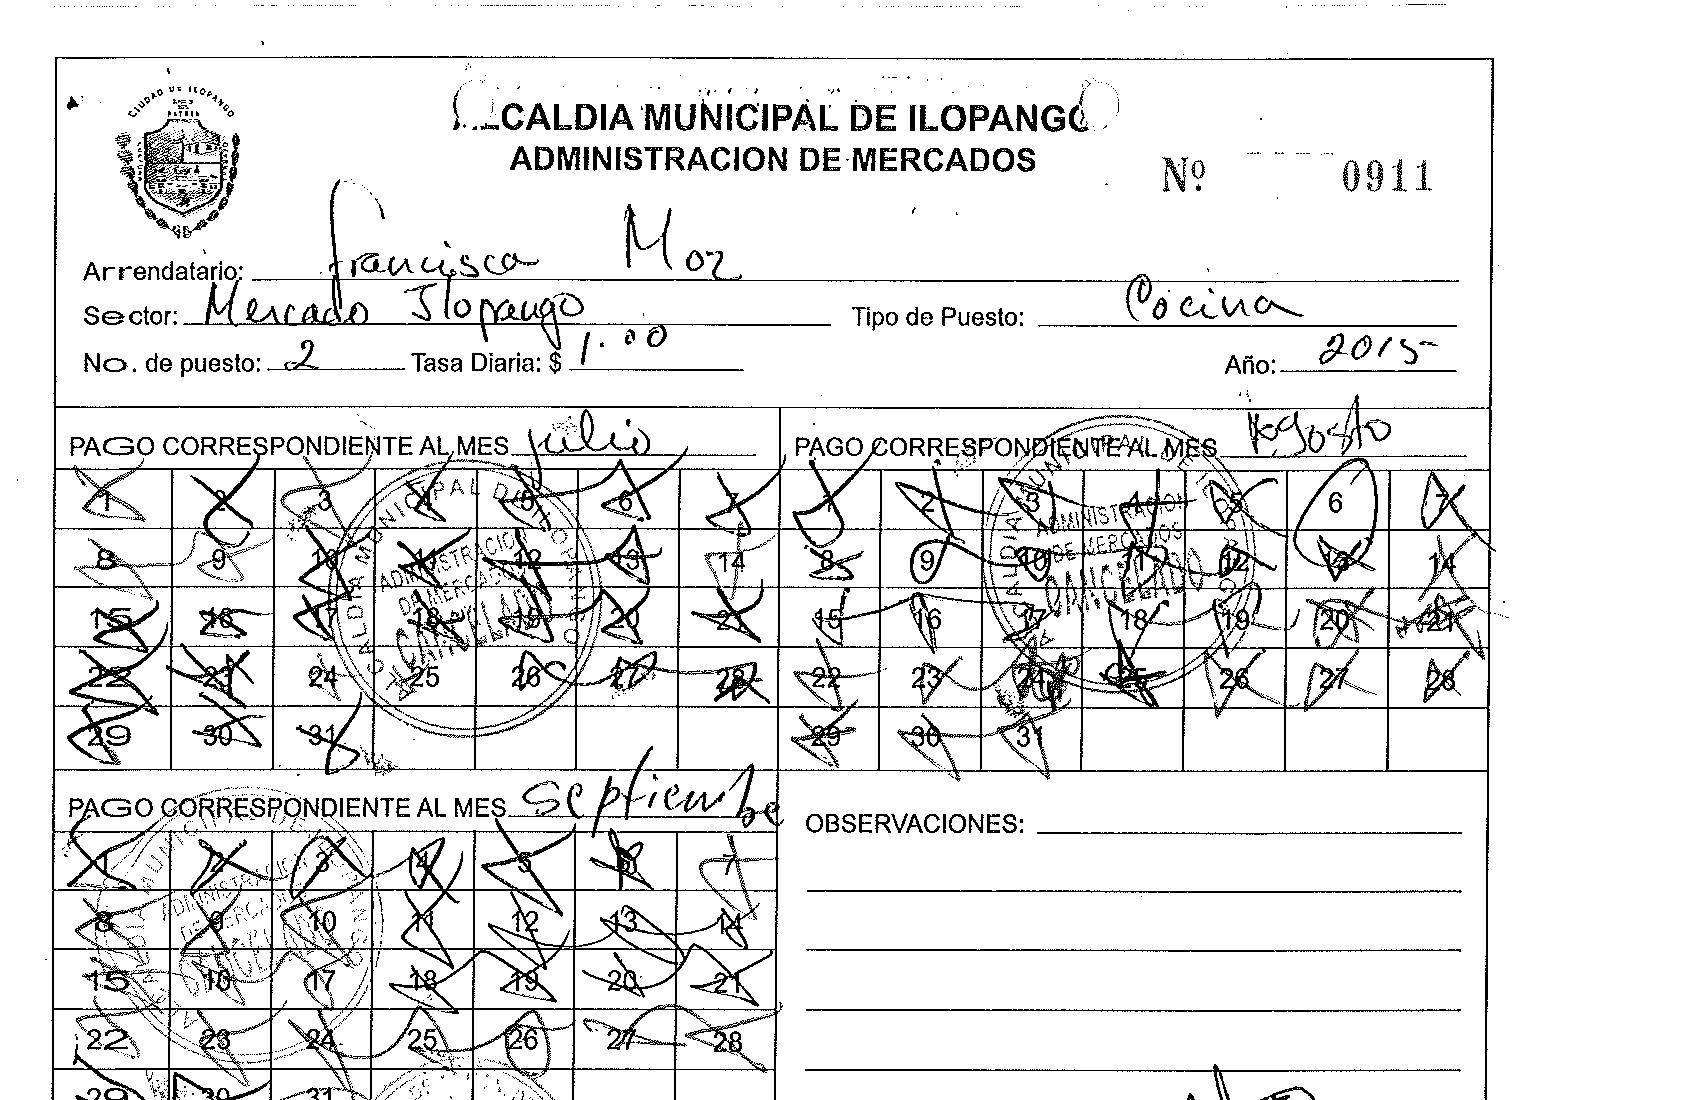 CIUDAD DE ILOPANGO
PATRIA
ALCALDIA MUNICIPAL DE ILOPANGO
ADMINISTRACION DE MERCADOS
Nº 0911
Arrendatario: Francisca Moz
Sector: Mercado Ilopango Tipo de Puesto: Cocina
No. de puesto: 2 Tasa Diaria: $ 1.00 Año: 2015
PAGO CORRESPONDIENTE AL MES Julio
1 2 3 4 5 6 7
8 9 10 11 12 13 14
15 16 17 18 19 20 21
22 23 24 25 26 27 28
29 30 31
ADMINISTRACION
DE MERCADOS
CANCELADO
PAGO CORRESPONDIENTE AL MES Agosto
1 2 3 4 5 6 7
8 9 10 11 12 13 14
15 16 17 18 19 20 21
22 23 24 25 26 27 28
29 30 31
ADMINISTRACION
DE MERCADOS
CANCELADO
PAGO CORRESPONDIENTE AL MES Septiembe
1 2 3 4 5 6 7
8 9 10 11 12 13 14
15 16 17 18 19 20 21
22 23 24 25 26 27 28
29 30 31
ADMINISTRACION
DE MERCADOS
CANCELADO
OBSERVACIONES: